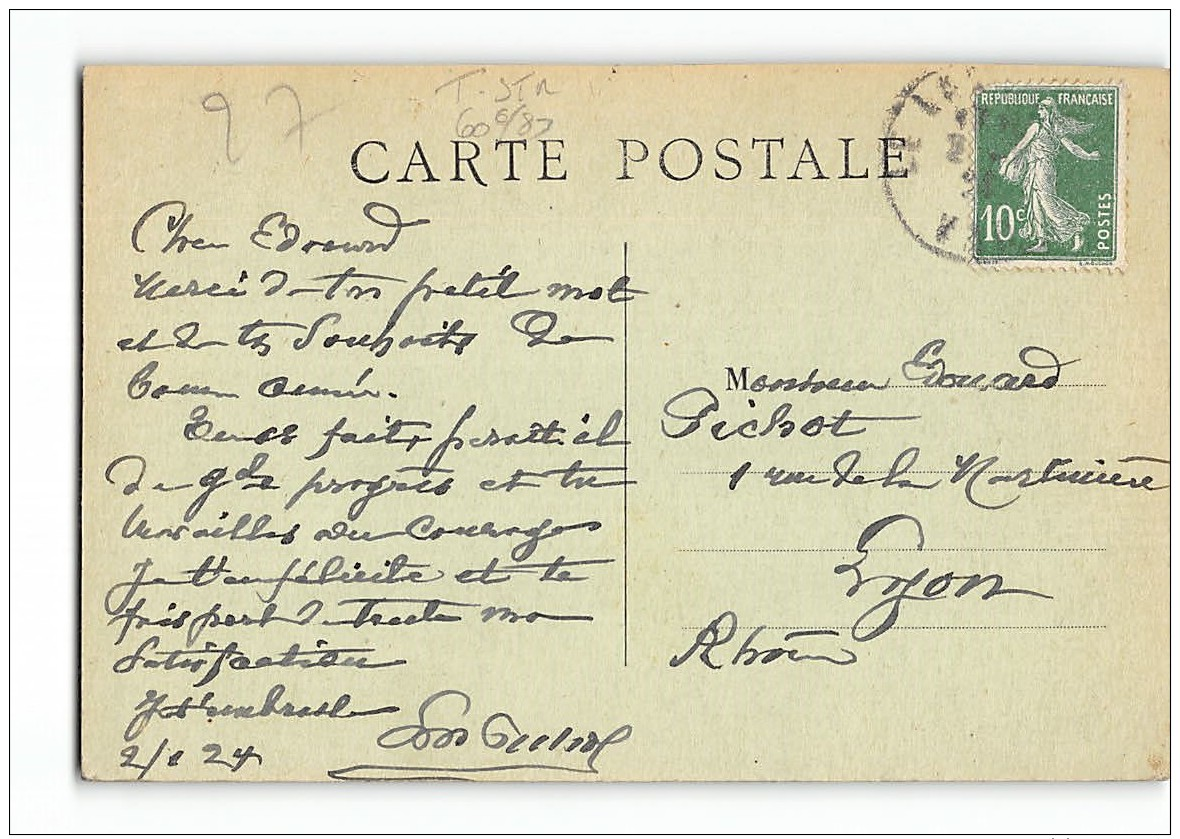 27
T. STR
CARTE POSTALE
RÉPUBLIQUE FRANÇAISE
10c
POSTES
Cher Edouard
Merci de ton petit mot
et de tes Souhaits de
bonne année.
Tu as fait, paraît-il
de gds progrès et tu
travailles avec courage
Je t'en félicite et te
fais part de toute ma
Satisfaction
Je t'embrasse
2/1 24
Monsieur Edouard
Pichot
1 rue de la Martinière
Lyon
Rhône